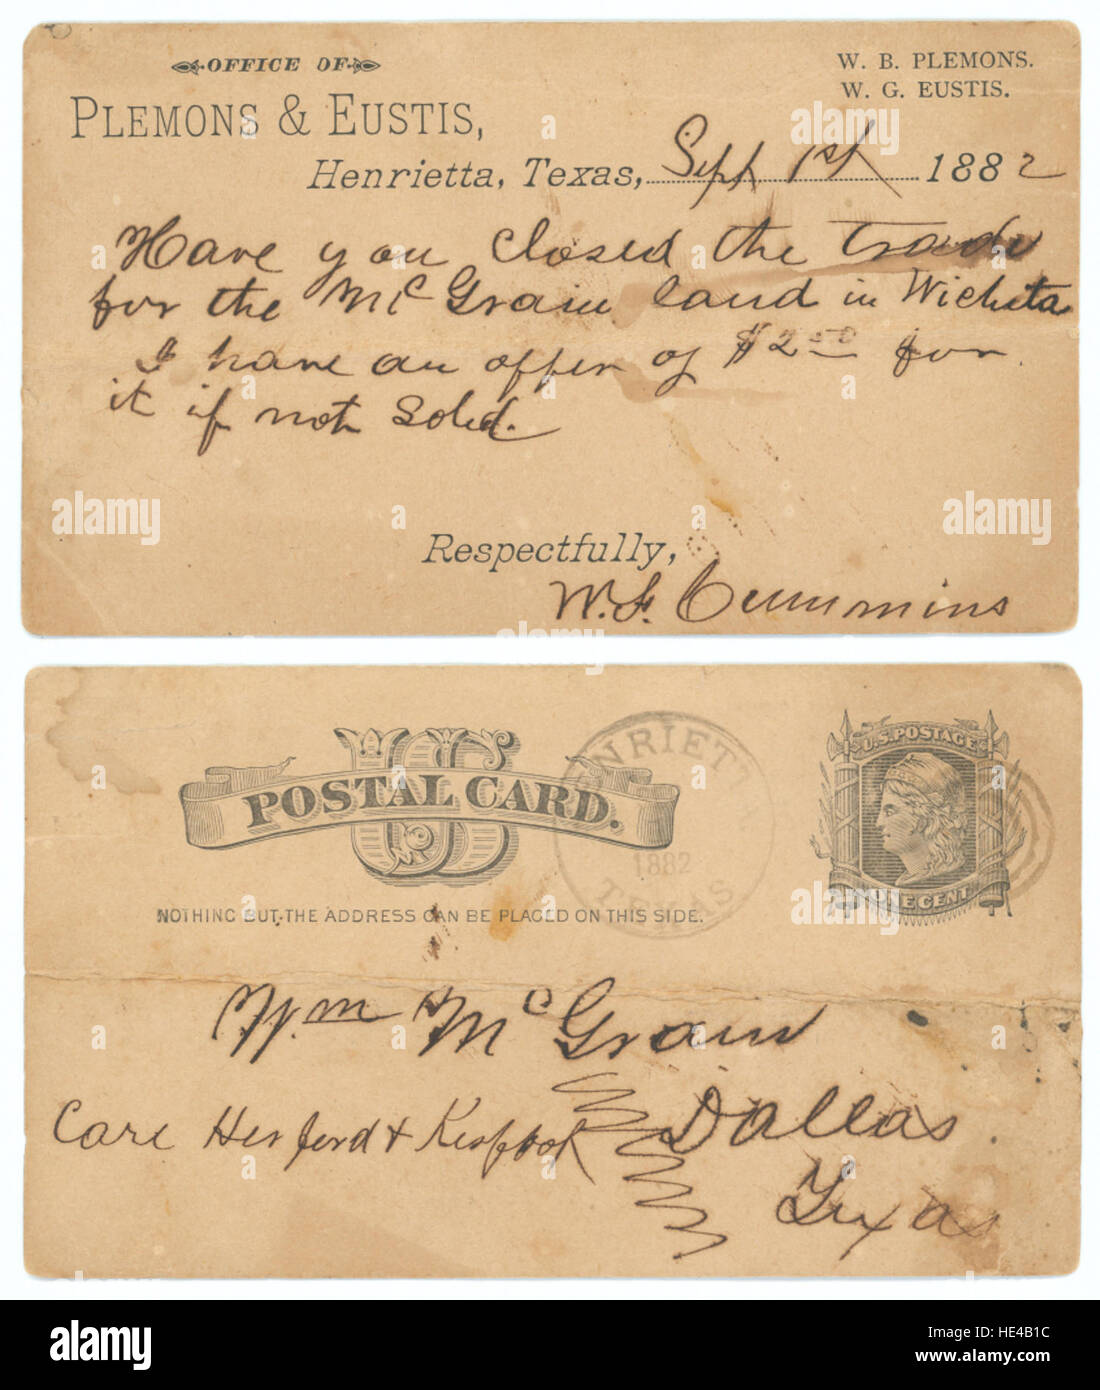 OFFICE OF
PLEMONS & EUSTIS,
W. B. PLEMONS.
W. G. EUSTIS.
Henrietta, Texas, Sept 1st 1882
Have you closed the trade
for the McGrain land in Wichita
I have an offer of $2 50 for
it if not sold.
Respectfully,
W. F. Cummins
US
POSTAL CARD.
NOTHING BUT THE ADDRESS CAN BE PLACED ON THIS SIDE.
HENRIETTA
1882
TEXAS
U.S. POSTAGE
ONE CENT
Wm McGrain
Care Herford &
Dallas
Texas
alamy
Image ID: HE4B1C
www.alamy.com